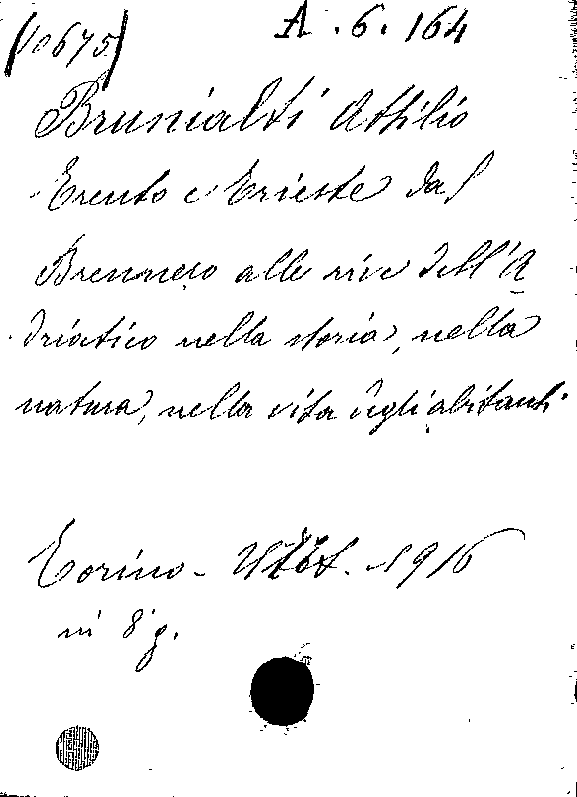 (10675)
A. 6. 164
Brunialti Attilio
Trento e Trieste dal
Brennero alle rive dell'A
driatico nella storia, nella
natura, nella vita degli abitanti.
Torino - Utet. - 1916
in 8° g.